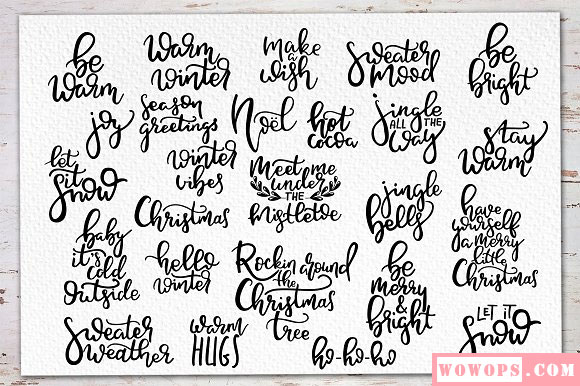 be
warm
warm
winter
make
a
wish
sweater
mood
be
bright
joy
season
greetings
Noël
hot
cocoa
jingle
ALL THE
way
stay
warm
let
it
snow
winter
vibes
Meet me
under
THE
mistletoe
jingle
bells
Christmas
have
yourself
a merry
little
Christmas
baby
it's
cold
outside
hello
winter
Rockin around
the
Christmas
tree
be
merry
&
bright
sweater
weather
warm
HUGS
ho-ho-ho
LET IT
Snow
WOWOPS.COM